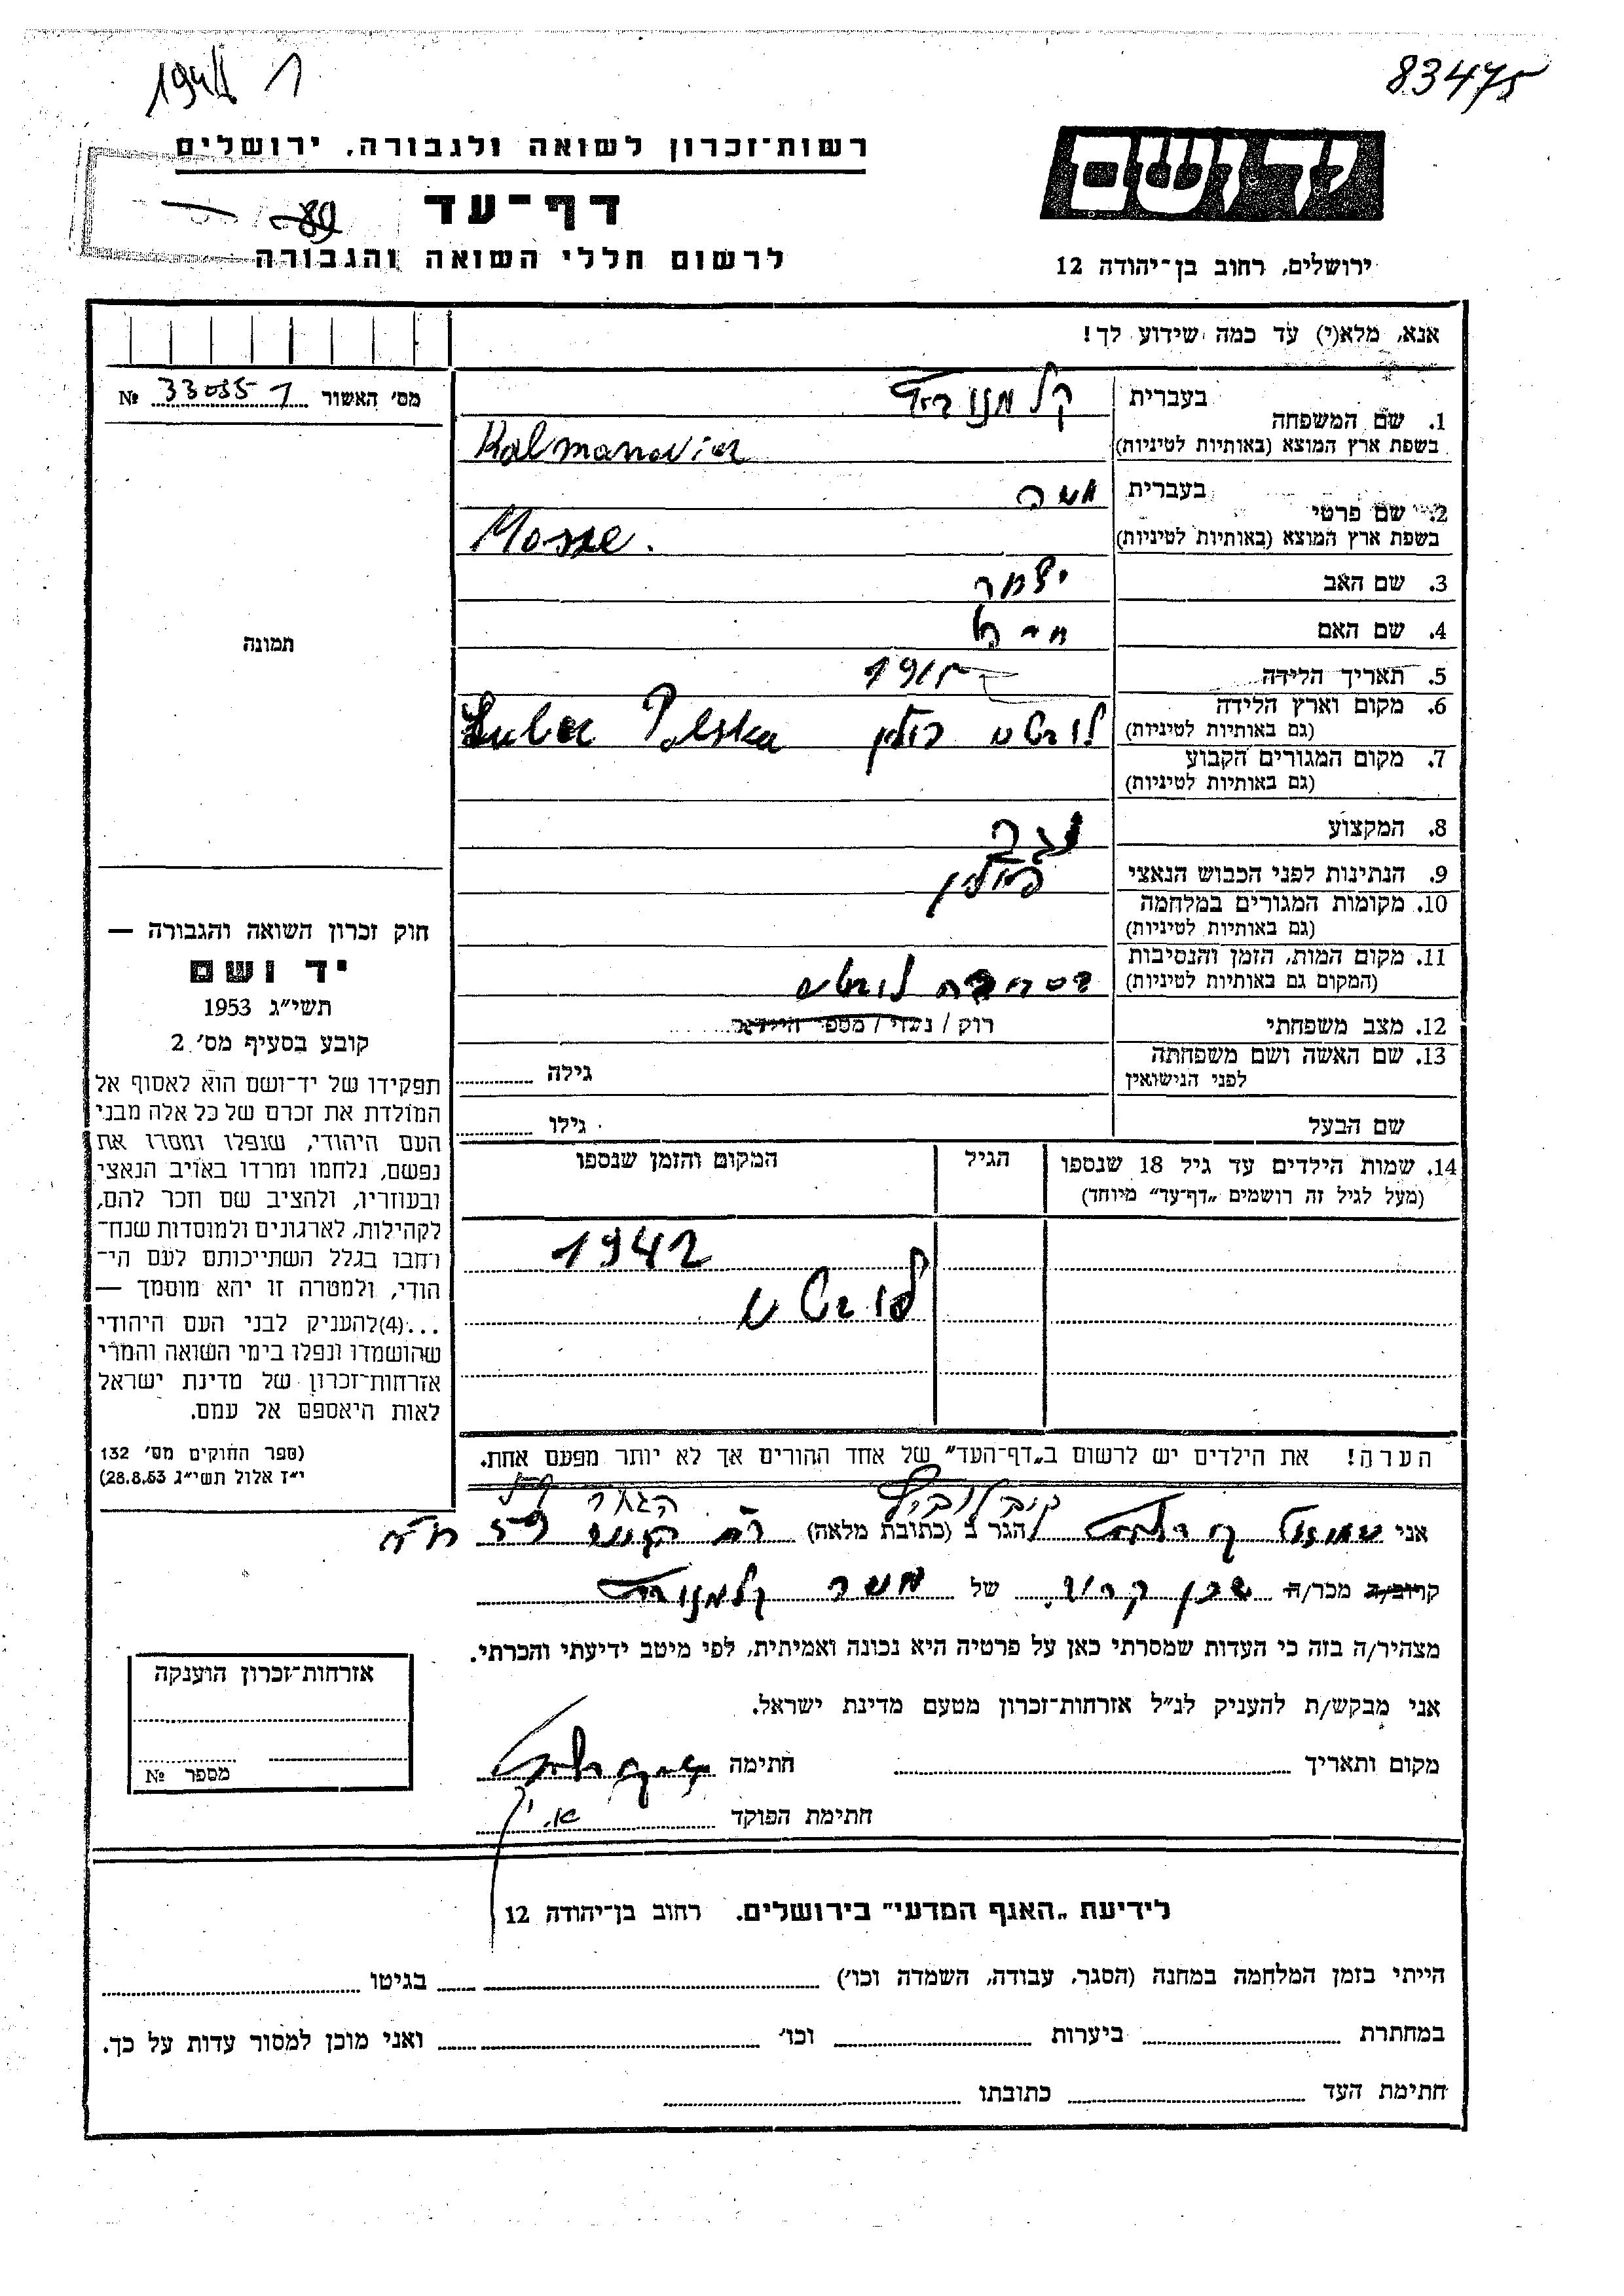 83475
1
רשות־זכרון לשואה ולגבורה, ירושלים
יד ושם
דף־עד
לרשום חללי השואה והגבורה
ירושלים, רחוב בן־יהודה 12
אנא, מלא(י) עד כמה שידוע לך!
מס׳ האשור № 33035 1
1. שם המשפחה
בעברית קלמנוביץ
בשפת ארץ המוצא (באותיות לטיניות) Kalmanovicz
2. שם פרטי
בעברית משה
בשפת ארץ המוצא (באותיות לטיניות) Mosze.
3. שם האב
4. שם האם
5. תאריך הלידה
6. מקום וארץ הלידה
(גם באותיות לטיניות) פולין Polska
7. מקום המגורים הקבוע
(גם באותיות לטיניות)
8. המקצוע
9. הנתינות לפני הכבוש הנאצי פולין
10. מקומות המגורים במלחמה
(גם באותיות לטיניות)
11. מקום המות, הזמן והנסיבות
(המקום גם באותיות לטיניות)
12. מצב משפחתי רוק / נשוי / מספר הילדים
13. שם האשה ושם משפחתה
לפני הנישואין
גילה
שם הבעל
גילו
14. שמות הילדים עד גיל 18 שנספו
(מעל לגיל זה רושמים „דף־עד” מיוחד)
הגיל
המקום והזמן שנספו
1942
הערה! את הילדים יש לרשום ב„דף־העד” של אחד ההורים אך לא יותר מפעם אחת.
תמונה
חוק זכרון השואה והגבורה —
יד ושם
תשי״ג 1953
קובע בסעיף מס׳ 2
תפקידו של יד־ושם הוא לאסוף אל
המולדת את זכרם של כל אלה מבני
העם היהודי, שנפלו ומסרו את
נפשם, נלחמו ומרדו באויב הנאצי
ובעוזריו, ולהציב שם וזכר להם,
לקהילות, לארגונים ולמוסדות שנח־
רחבו בגלל השתייכותם לעם הי־
הודי, ולמטרה זו יהא מוסמך —
...(4)להעניק לבני העם היהודי
שהושמדו ונפלו בימי השואה והמרי
אזרחות־זכרון של מדינת ישראל
לאות היאספם אל עמם.
(ספר החוקים מס׳ 132
י״ז אלול תשי״ג 28.8.53)
אני שמואל הגר ב (כתובת מלאה)
קרוב/ה מכר/ה של משה קלמנוביץ
מצהיר/ה בזה כי העדות שמסרתי כאן על פרטיה היא נכונה ואמיתית, לפי מיטב ידיעתי והכרתי.
אני מבקש/ת להעניק לנ״ל אזרחות־זכרון מטעם מדינת ישראל.
מקום ותאריך חתימה
חתימת הפוקד
אזרחות־זכרון הוענקה
מספר №
לידיעת „האגף המדעי” בירושלים. רחוב בן־יהודה 12
הייתי בזמן המלחמה במחנה (הסגר, עבודה, השמדה וכו׳) בגיטו
במחתרת ביערות וכו׳ ואני מוכן למסור עדות על כך.
חתימת העד כתובתו